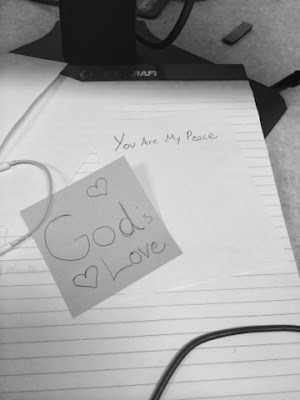 You Are My Peace
God's
Love